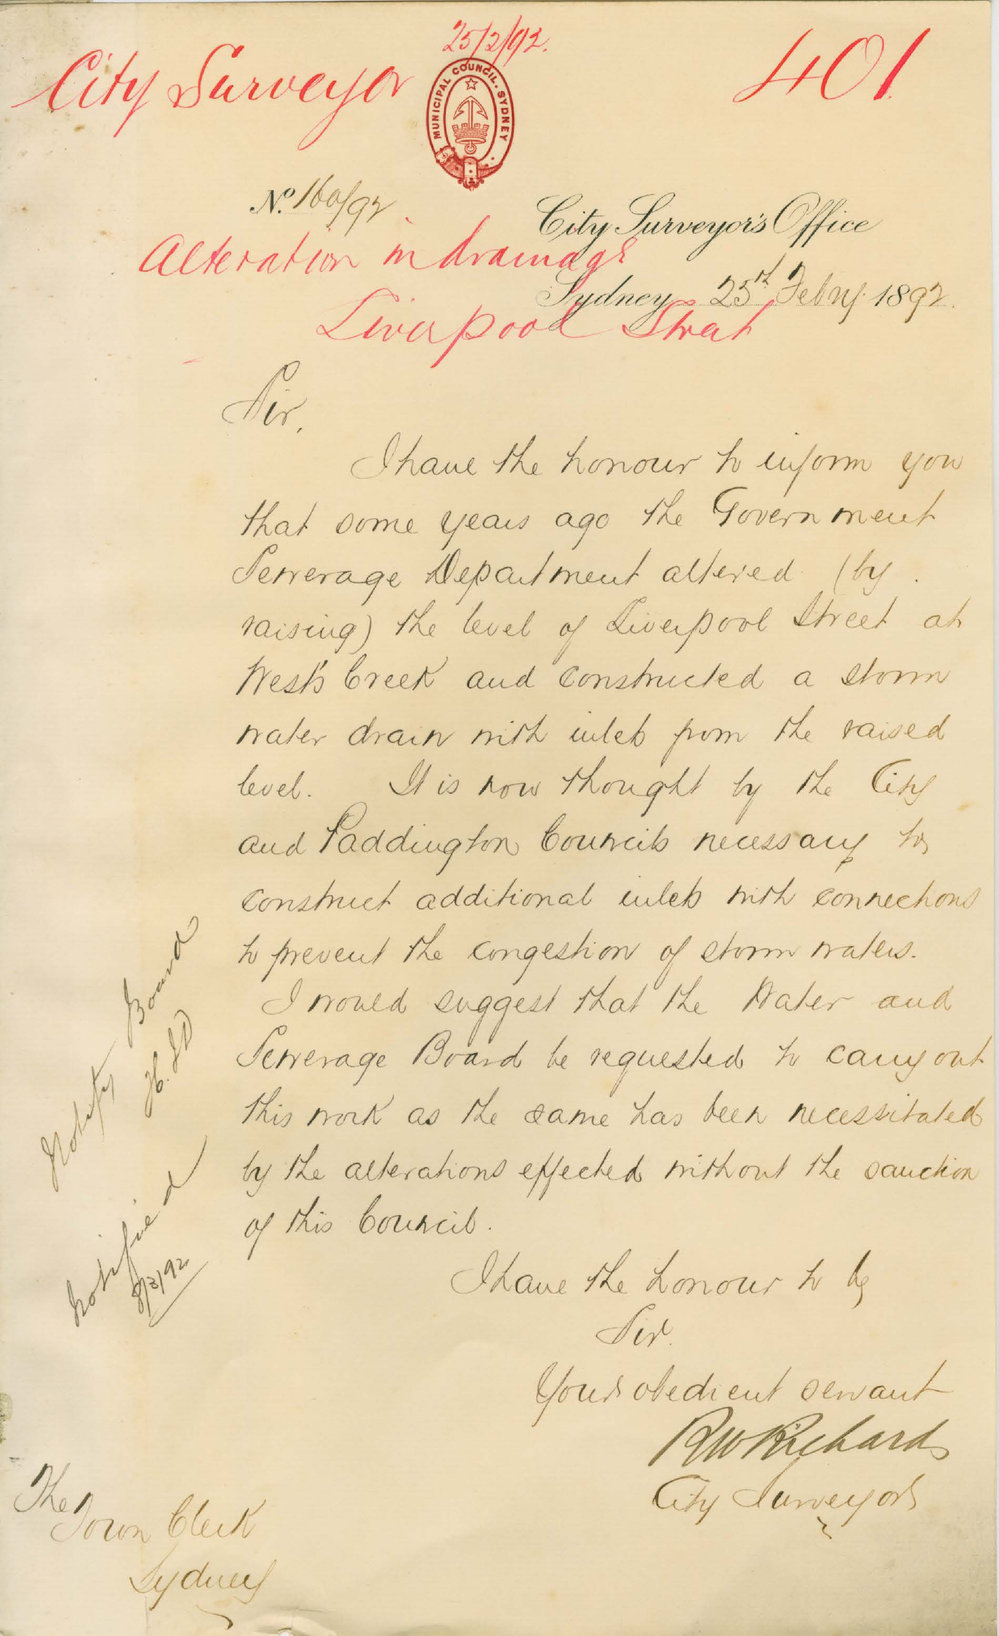 25/2/92.
City Surveyor
401
MUNICIPAL COUNCIL. SYDNEY
No. 160/92
City Surveyor's Office
Alteration in drainage
Sydney 25th Febry. 1892.
Liverpool Street
Sir,
I have the honour to inform you
that some years ago the Government
Sewerage Department altered (by
raising) the level of Liverpool Street at
West's Creek and constructed a storm
water drain with inlets from the raised
level. It is now thought by the City
and Paddington Councils necessary to
construct additional inlets with connections
to prevent the congestion of storm waters.
I would suggest that the Water and
Sewerage Board be requested to carry out
this work as the same has been necessitated
by the alterations effected without the sanction
of this Council.
I have the honour to be
Sir.
Your obedient servant
RW Richards
City Surveyor
The
Town Clerk
Sydney
Notify Board
Notified
8/3/92